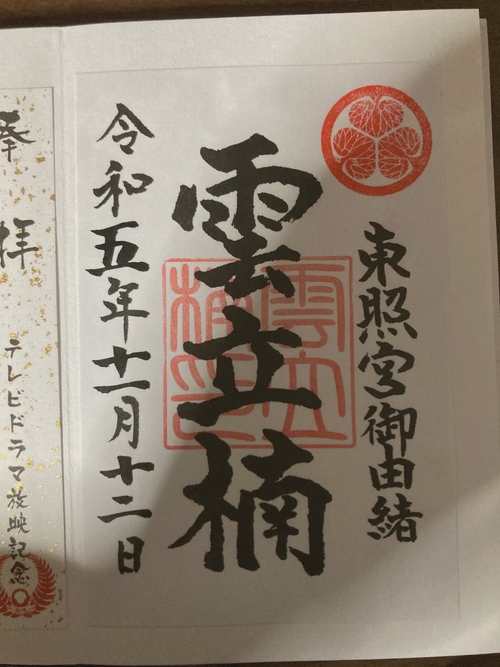 東照宮御由緒
雲立楠
令和五年十一月十二日
奉拝
テレビドラマ放映記念